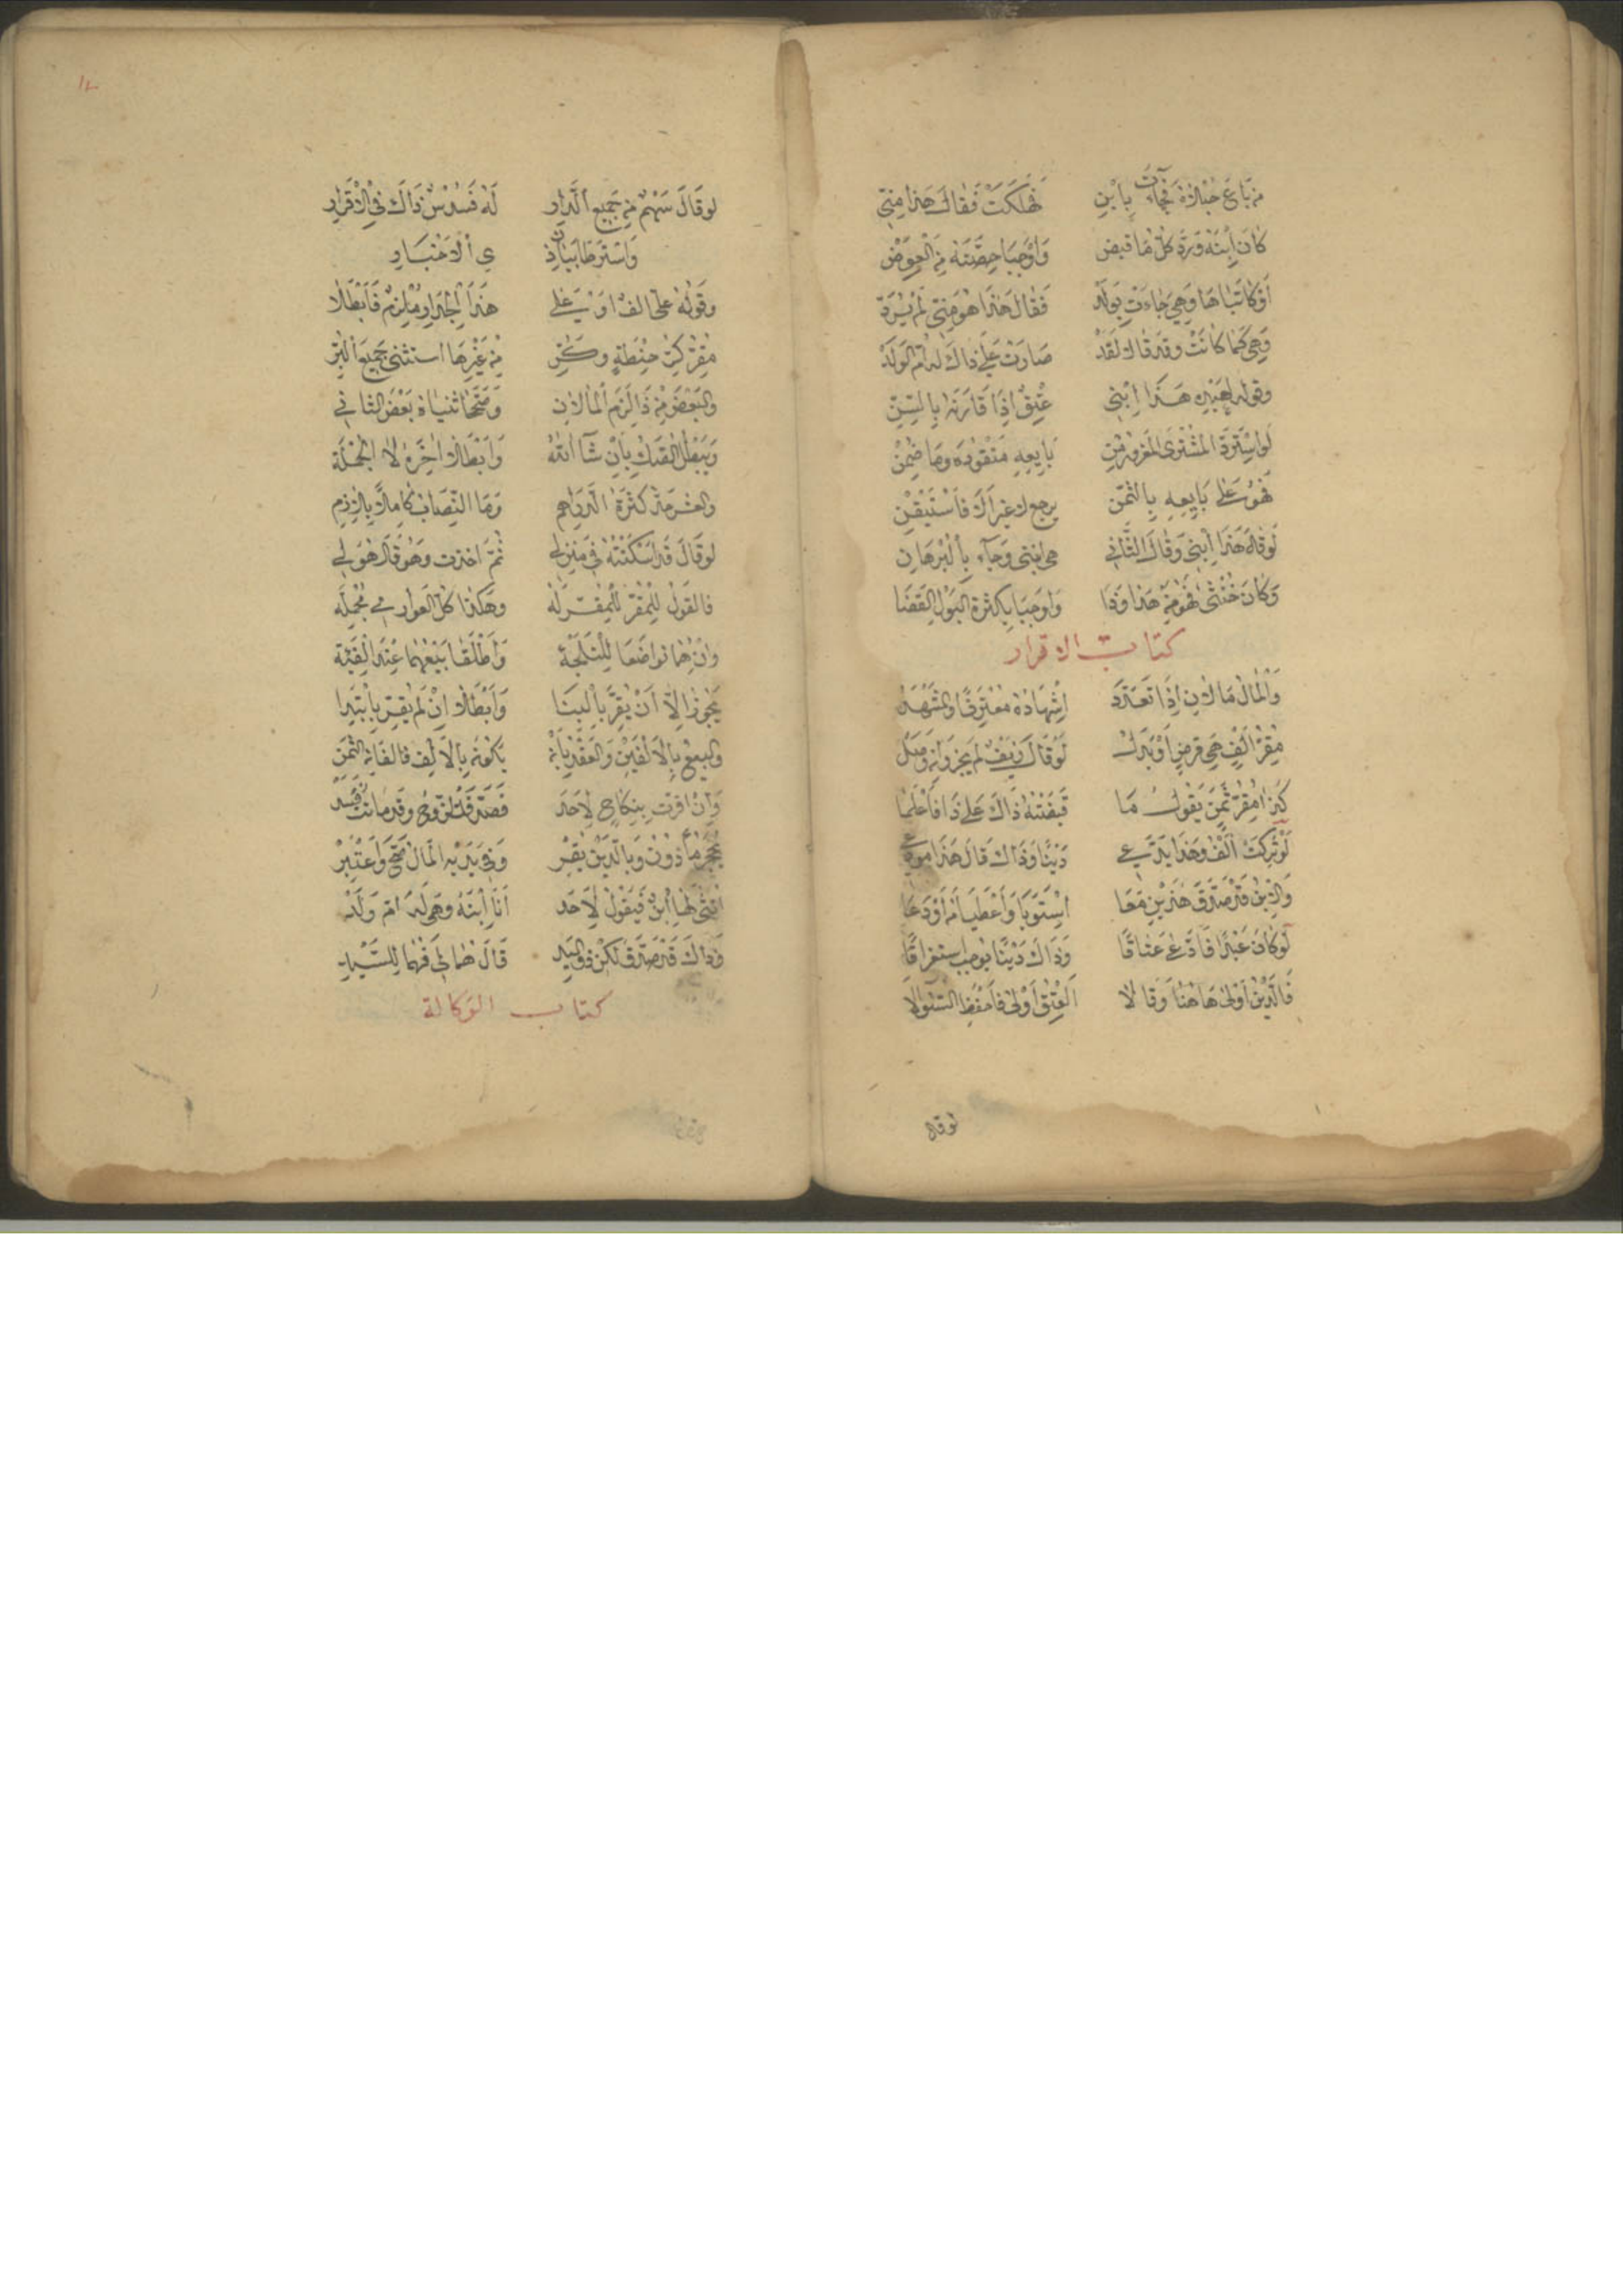 من باع حبلاة فجآءت بابن فهلكت فقال هذا مني
كان ابنه ورد كل ما قبض واوجبا حصته من العوض
او كاتباها وهي جاءت بولد فقال هذا هو مني لم يرد
وهي كما كانت وقد قال لقد صارت على ذاك له ام الولد
وقوله لعبده هذا ابني عتق اذا قارنه بالسن
لو استرد المشتري المغرور من بايعه منقوده وما ضمن
فهو على بايعه بالثمن يرجع لا غير الا فاستيقن
لو قال هذا ابني وقال الثاني هي ابنتي وجآء بالبرهان
وكان خنثى فهو من هذا وذا واوجبا بكثرة البول القضا
كتاب الاقرار
والمال مالان اذا تعددا اشهاده معترفا والمشهد
مقر الف هي قرض او بدل لو قال زيف لم يجز وان وصل
كذا مقر ثمن يقول ما قبضته ذاك على ذا فاعلما
لو تركت الف وهذا يدعي دينا وذاك قال هذا مودعي
والابن قد صدق هذين معا استويا واعطيا من اودعا
لو كان عبدا فادعى عتاقا وذاك دينا يوجب استغراقا
فالدين اولى هاهنا وقالا العتق اولى فاحفظ السئوالا
لوقال
لو قال سهم من جميع الدار له فسدس ذاك في الاقرار
واشترطا بيان ذي الاخبار
وقوله على الف او على هذا الجدار ملزم فابطلا
مقر كر حنطة وكر من غيرها استثنى جميع البر
والبعض من ذا لزم المالان وصححا ثنياه بعض الثاني
ويبطل الصك بان شآ الله وابطلا اخره لا الجمله
والعشر من كثرة الدراهم وما النصاب كاملا بلازم
لو قال قد اسكنته في منزلي ثم اخذت وهو قال هو لي
فالقول للمقر للمقر له وهكذا كل العواري مجمله
وان هما تواضعا للتلجئة واطلقا بيعهما عند الفئة
يجوز الا ان يقر بالبنا وابطلا ان لم يقر بابتدا
والبيع بالالفين والعقد بان يكونه بالالف فالفان الثمن
وان اقرت بنكاح لاحد فصدق الزوج وقد ماتت فسد
يحجر مأذون وبالدين يقر وفي يديه المال صح واعتبر
انثى لها ابن فيقول لاحد انا ابنه وهي له ام ولد
وذاك قد صدق لكن ذو اليد قال هما لي فهما للسيد
كتاب الوكالة